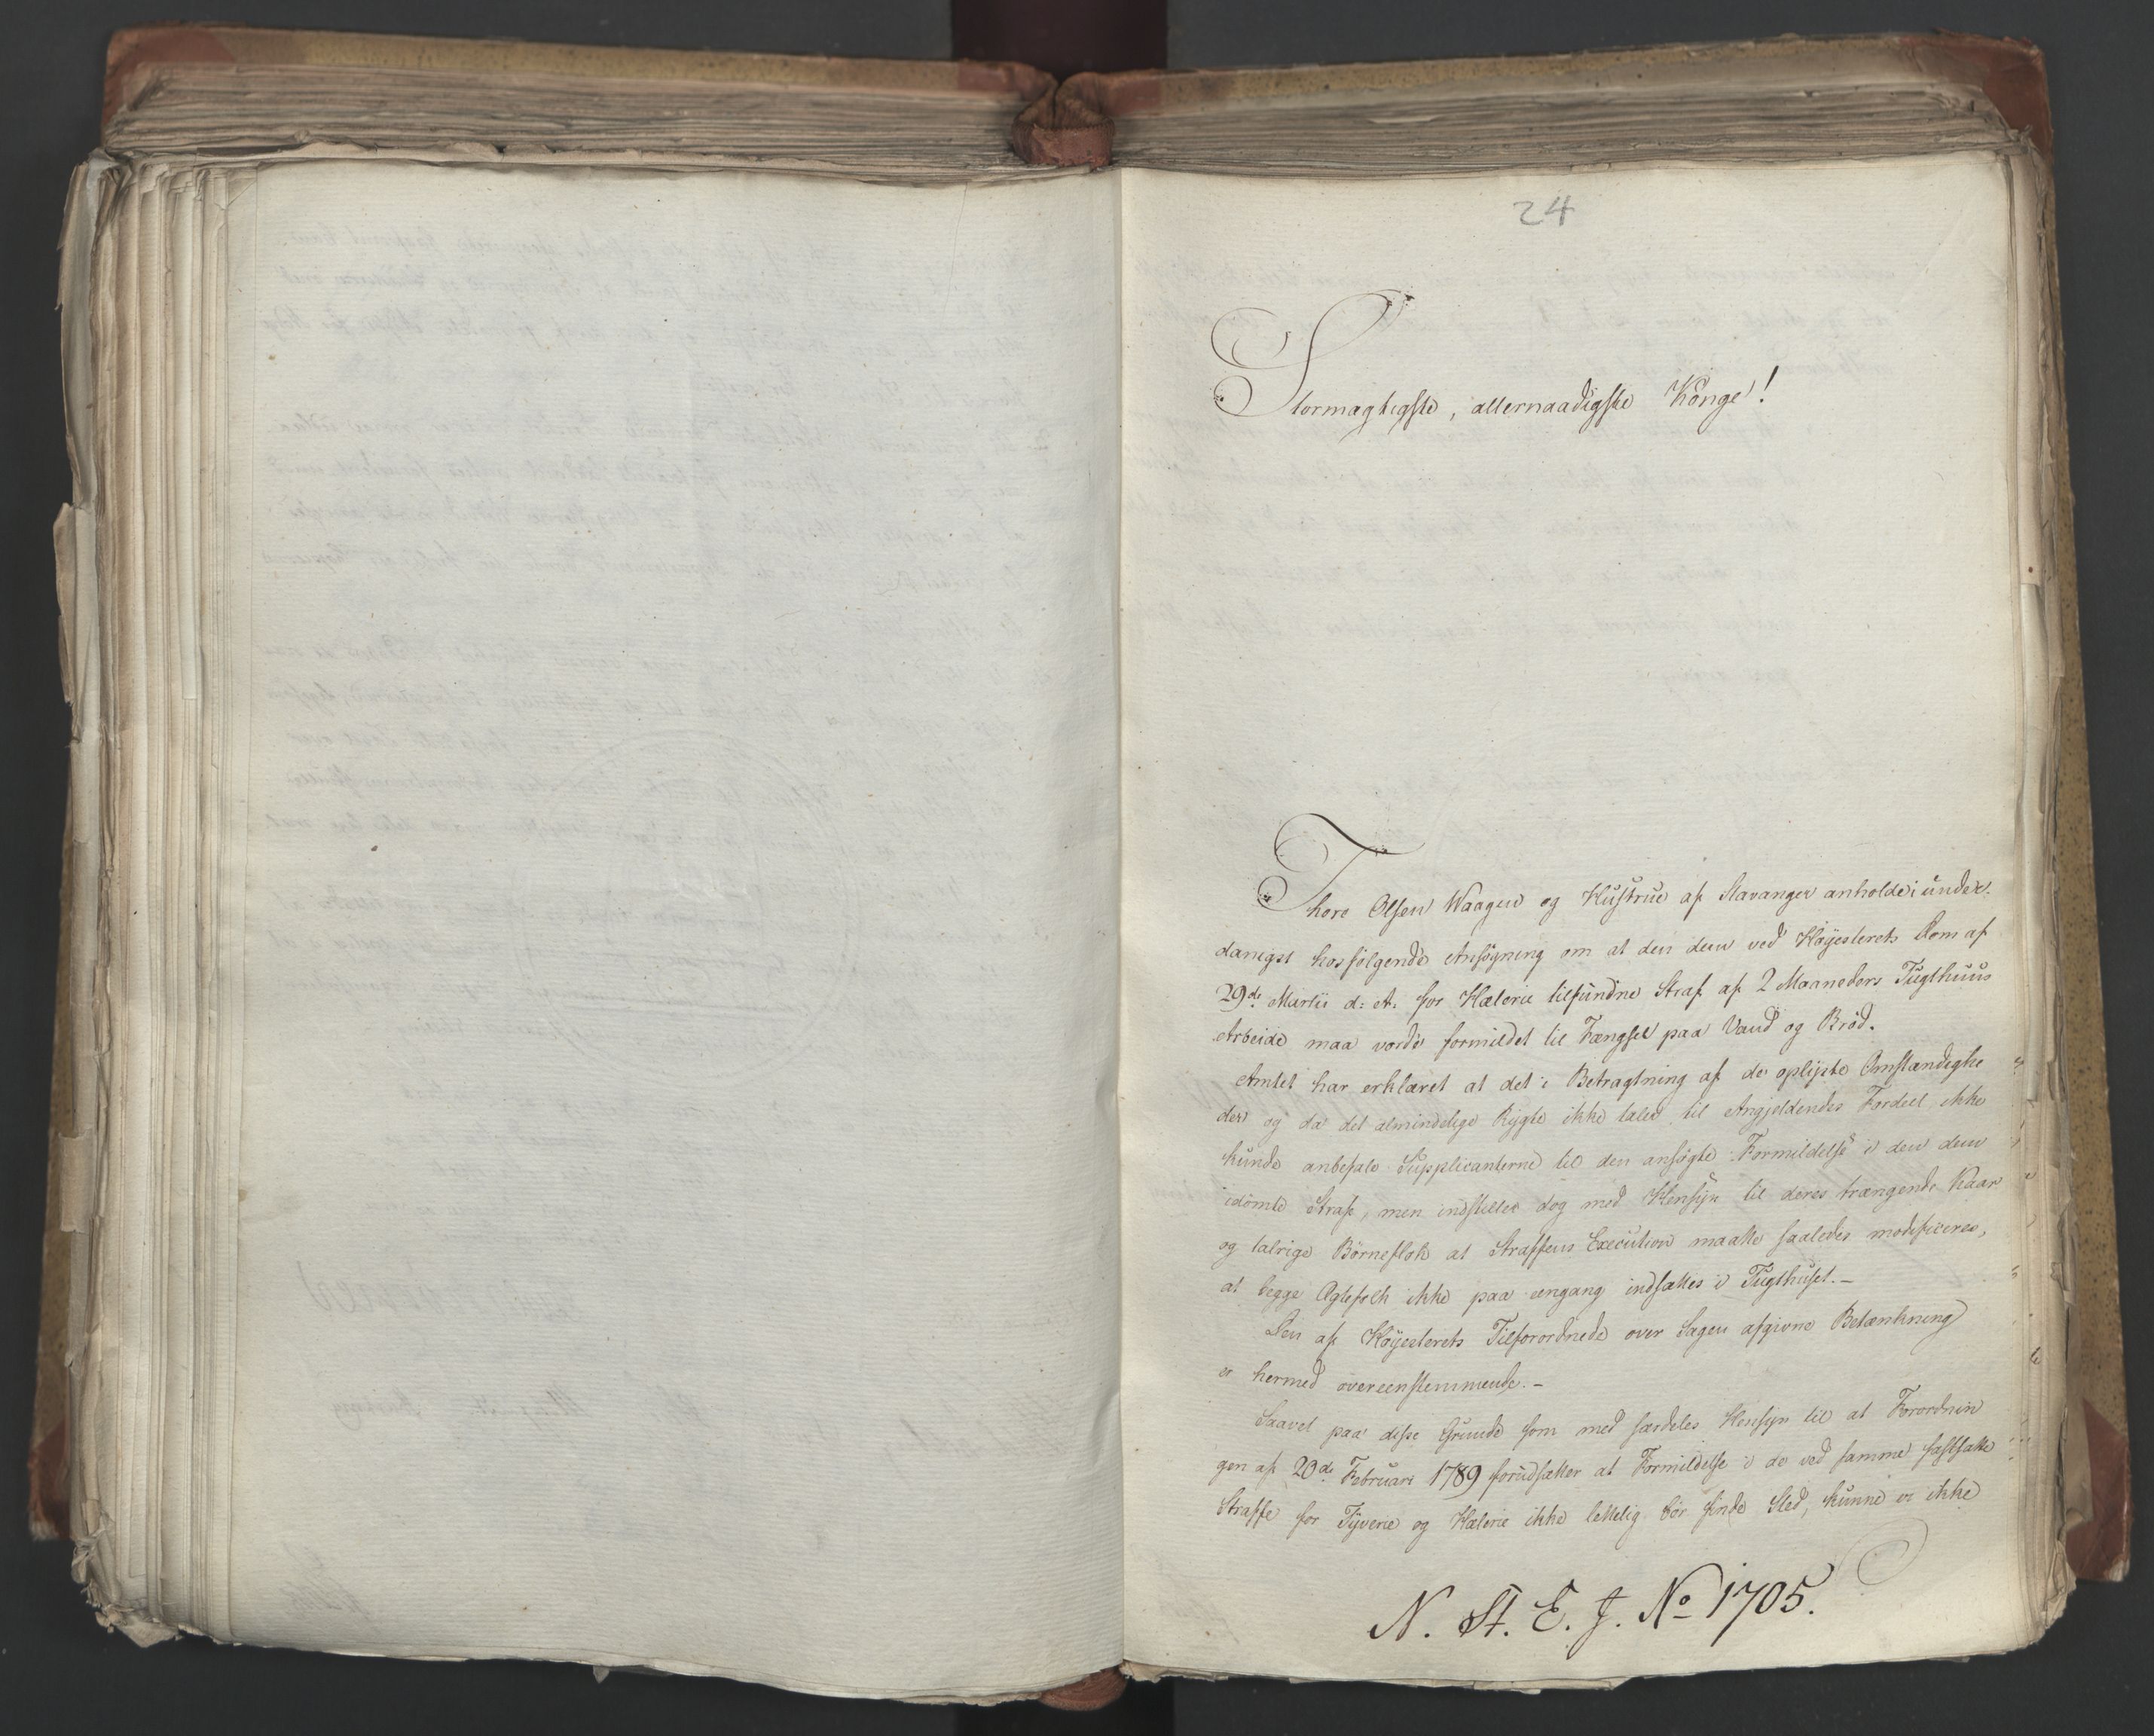 24
Stormagtigste, allernaadigste Konge!
Thore Olsen Waagen og Hustrue af Stavanger anholde i under-
danigst hosfølgende Ansøgning om at den dem ved Høyesterets Dom af
29de Martii d: A. for Hælerie tilfundne Straf af 2 Maaneders Tugthuus
Arbeide maa vorde formildet til Fængsel paa Vand og Brød.
Amtet har erklæret at det i Betragtning af de oplyste Omstændighe
der og da det almindelige Rygte ikke taler til Angjeldendes Fordeel ikke
kunde anbefale Supplicanterne til den ansøgte Formildelse i den dem
idømte Straf, men indstiller dog med Hensyn til deres trængende Kaar
og talrige Børneflok at Straffens Execution maatte saaledes modificeres,
at begge Ægtefolk ikke paa eengang indsættes i Tugthuset.-
Den af Høyesterets Tilforordnede over Sagen afgivne Betænkning
er hermed overeenstemmende.-
Saavel paa disse Grunde som med særdeles Hensyn til at Forordnin
gen af 20de Februari 1789 forudsætter at Formildelse i de ved samme fastsatte
Straffe for Tyverie og Hælerie ikke lettelig bør finde Sted, kunne vi ikke
N. St. E. J. No 1705.